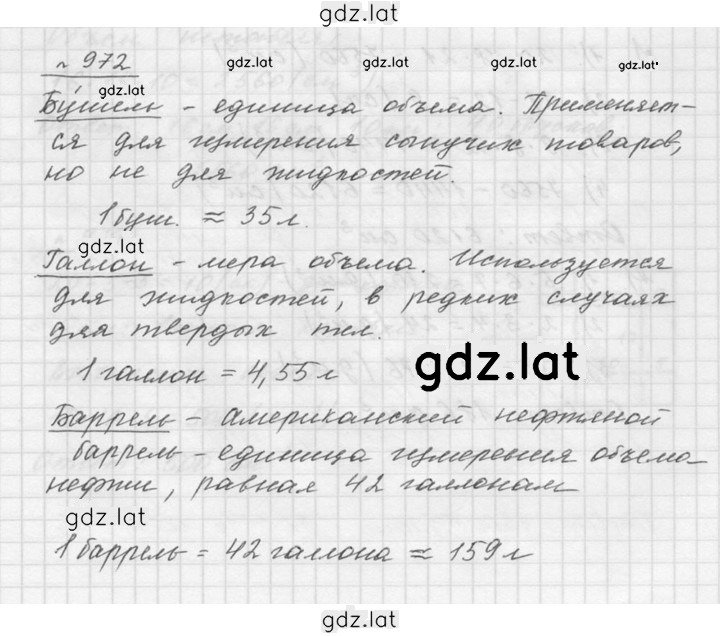 gdz.lat
№ 972
gdz.lat gdz.lat gdz.lat
Бу́шель - единица объема. Применяет-
ся для измерения сыпучих товаров,
но не для жидкостей.
gdz.lat gdz.lat gdz.lat
1 буш. ≈ 35 л.
gdz.lat
Галлон - мера объема. Используется
для жидкостей, в редких случаях
для твердых тел.
1 галлон = 4,55 л
gdz.lat
Баррель - американский нефтяной
баррель - единица измерения объема
нефти, равная 42 галлонам
gdz.lat
1 баррель = 42 галлона ≈ 159 л
gdz.lat